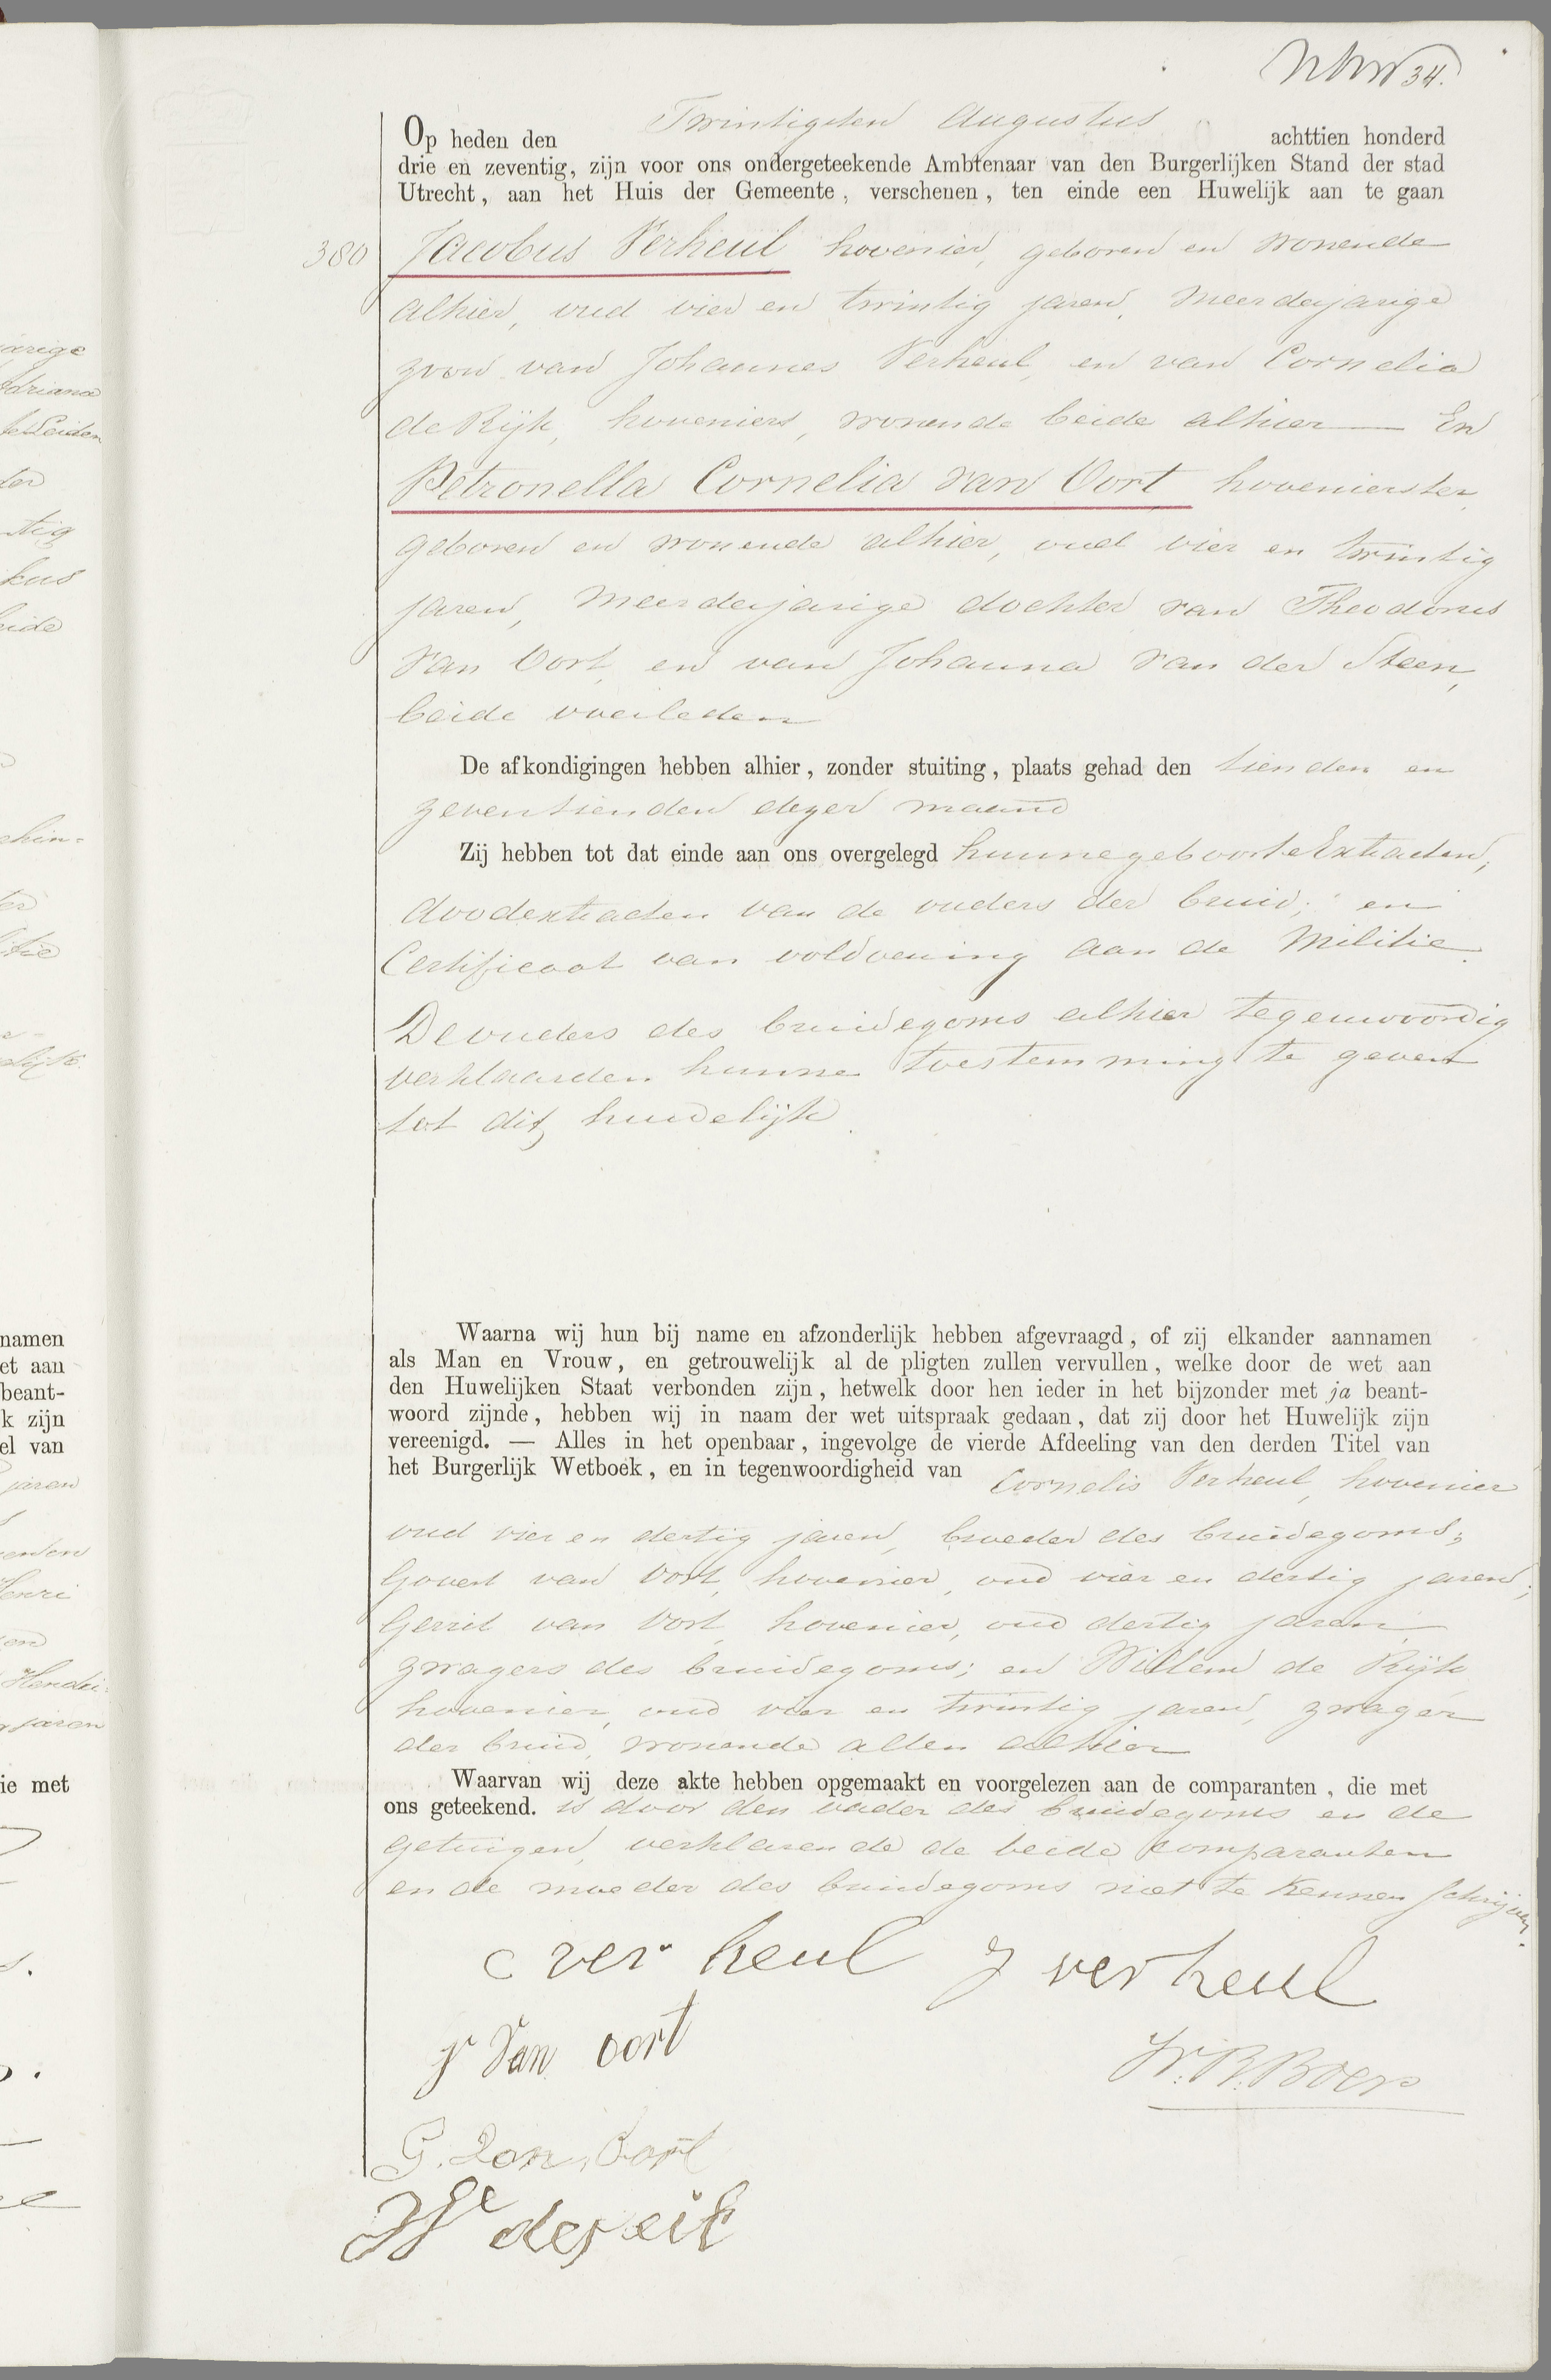 34.
Op heden den Twintigsten Augustus achttien honderd
drie en zeventig, zijn voor ons ondergeteekende Ambtenaar van den Burgerlijken Stand der stad
Utrecht, aan het Huis der Gemeente, verschenen, ten einde een Huwelijk aan te gaan
380 Jacobus Verheul hovenier, geboren en wonende
alhier, oud vier en twintig jaren, meerderjarige
zoon van Johannes Verheul, en van Cornelia
de Rijk, hoveniers, wonende beide alhier — En
Petronella Cornelia van Oort hovenierster,
geboren en wonende alhier, oud vier en twintig
jaren, meerderjarige dochter van Theodorus
van Oort, en van Johanna van der Steen,
beide overleden
De afkondigingen hebben alhier, zonder stuiting, plaats gehad den tienden en
zeventienden dezer maand
Zij hebben tot dat einde aan ons overgelegd hunne geboorte Extracten,
doodextracten van de ouders der bruid; en
Certificaat van voldoening aan de Militie.
De ouders des bruidegoms alhier tegenwoordig
verklaarden hunne toestemming te geven
tot dit huwelijk.
Waarna wij hun bij name en afzonderlijk hebben afgevraagd, of zij elkander aannamen
als Man en Vrouw, en getrouwelijk al de pligten zullen vervullen, welke door de wet aan
den Huwelijken Staat verbonden zijn, hetwelk door hen ieder in het bijzonder met ja beant-
woord zijnde, hebben wij in naam der wet uitspraak gedaan, dat zij door het Huwelijk zijn
vereenigd. — Alles in het openbaar, ingevolge de vierde Afdeeling van den derden Titel van
het Burgerlijk Wetboek, en in tegenwoordigheid van Cornelis Verheul, hovenier
oud vier en dertig jaren, broeder des bruidegoms;
Govert van Oort, hovenier, oud vier en dertig jaren;
Gerrit van Oort, hovenier, oud dertig jaren,
zwagers des bruidegoms; en Willem de Rijk
hovenier, oud vier en twintig jaren, zwager
der bruid, wonende allen alhier
Waarvan wij deze akte hebben opgemaakt en voorgelezen aan de comparanten, die met
ons geteekend. is door den vader des bruidegoms en de
getuigen, verklarende de beide comparanten
en de moeder des bruidegoms niet te kennen schrijven.
C ver heul J verheul
Van oort
W. R. Boers
G. van Oort
We dereik